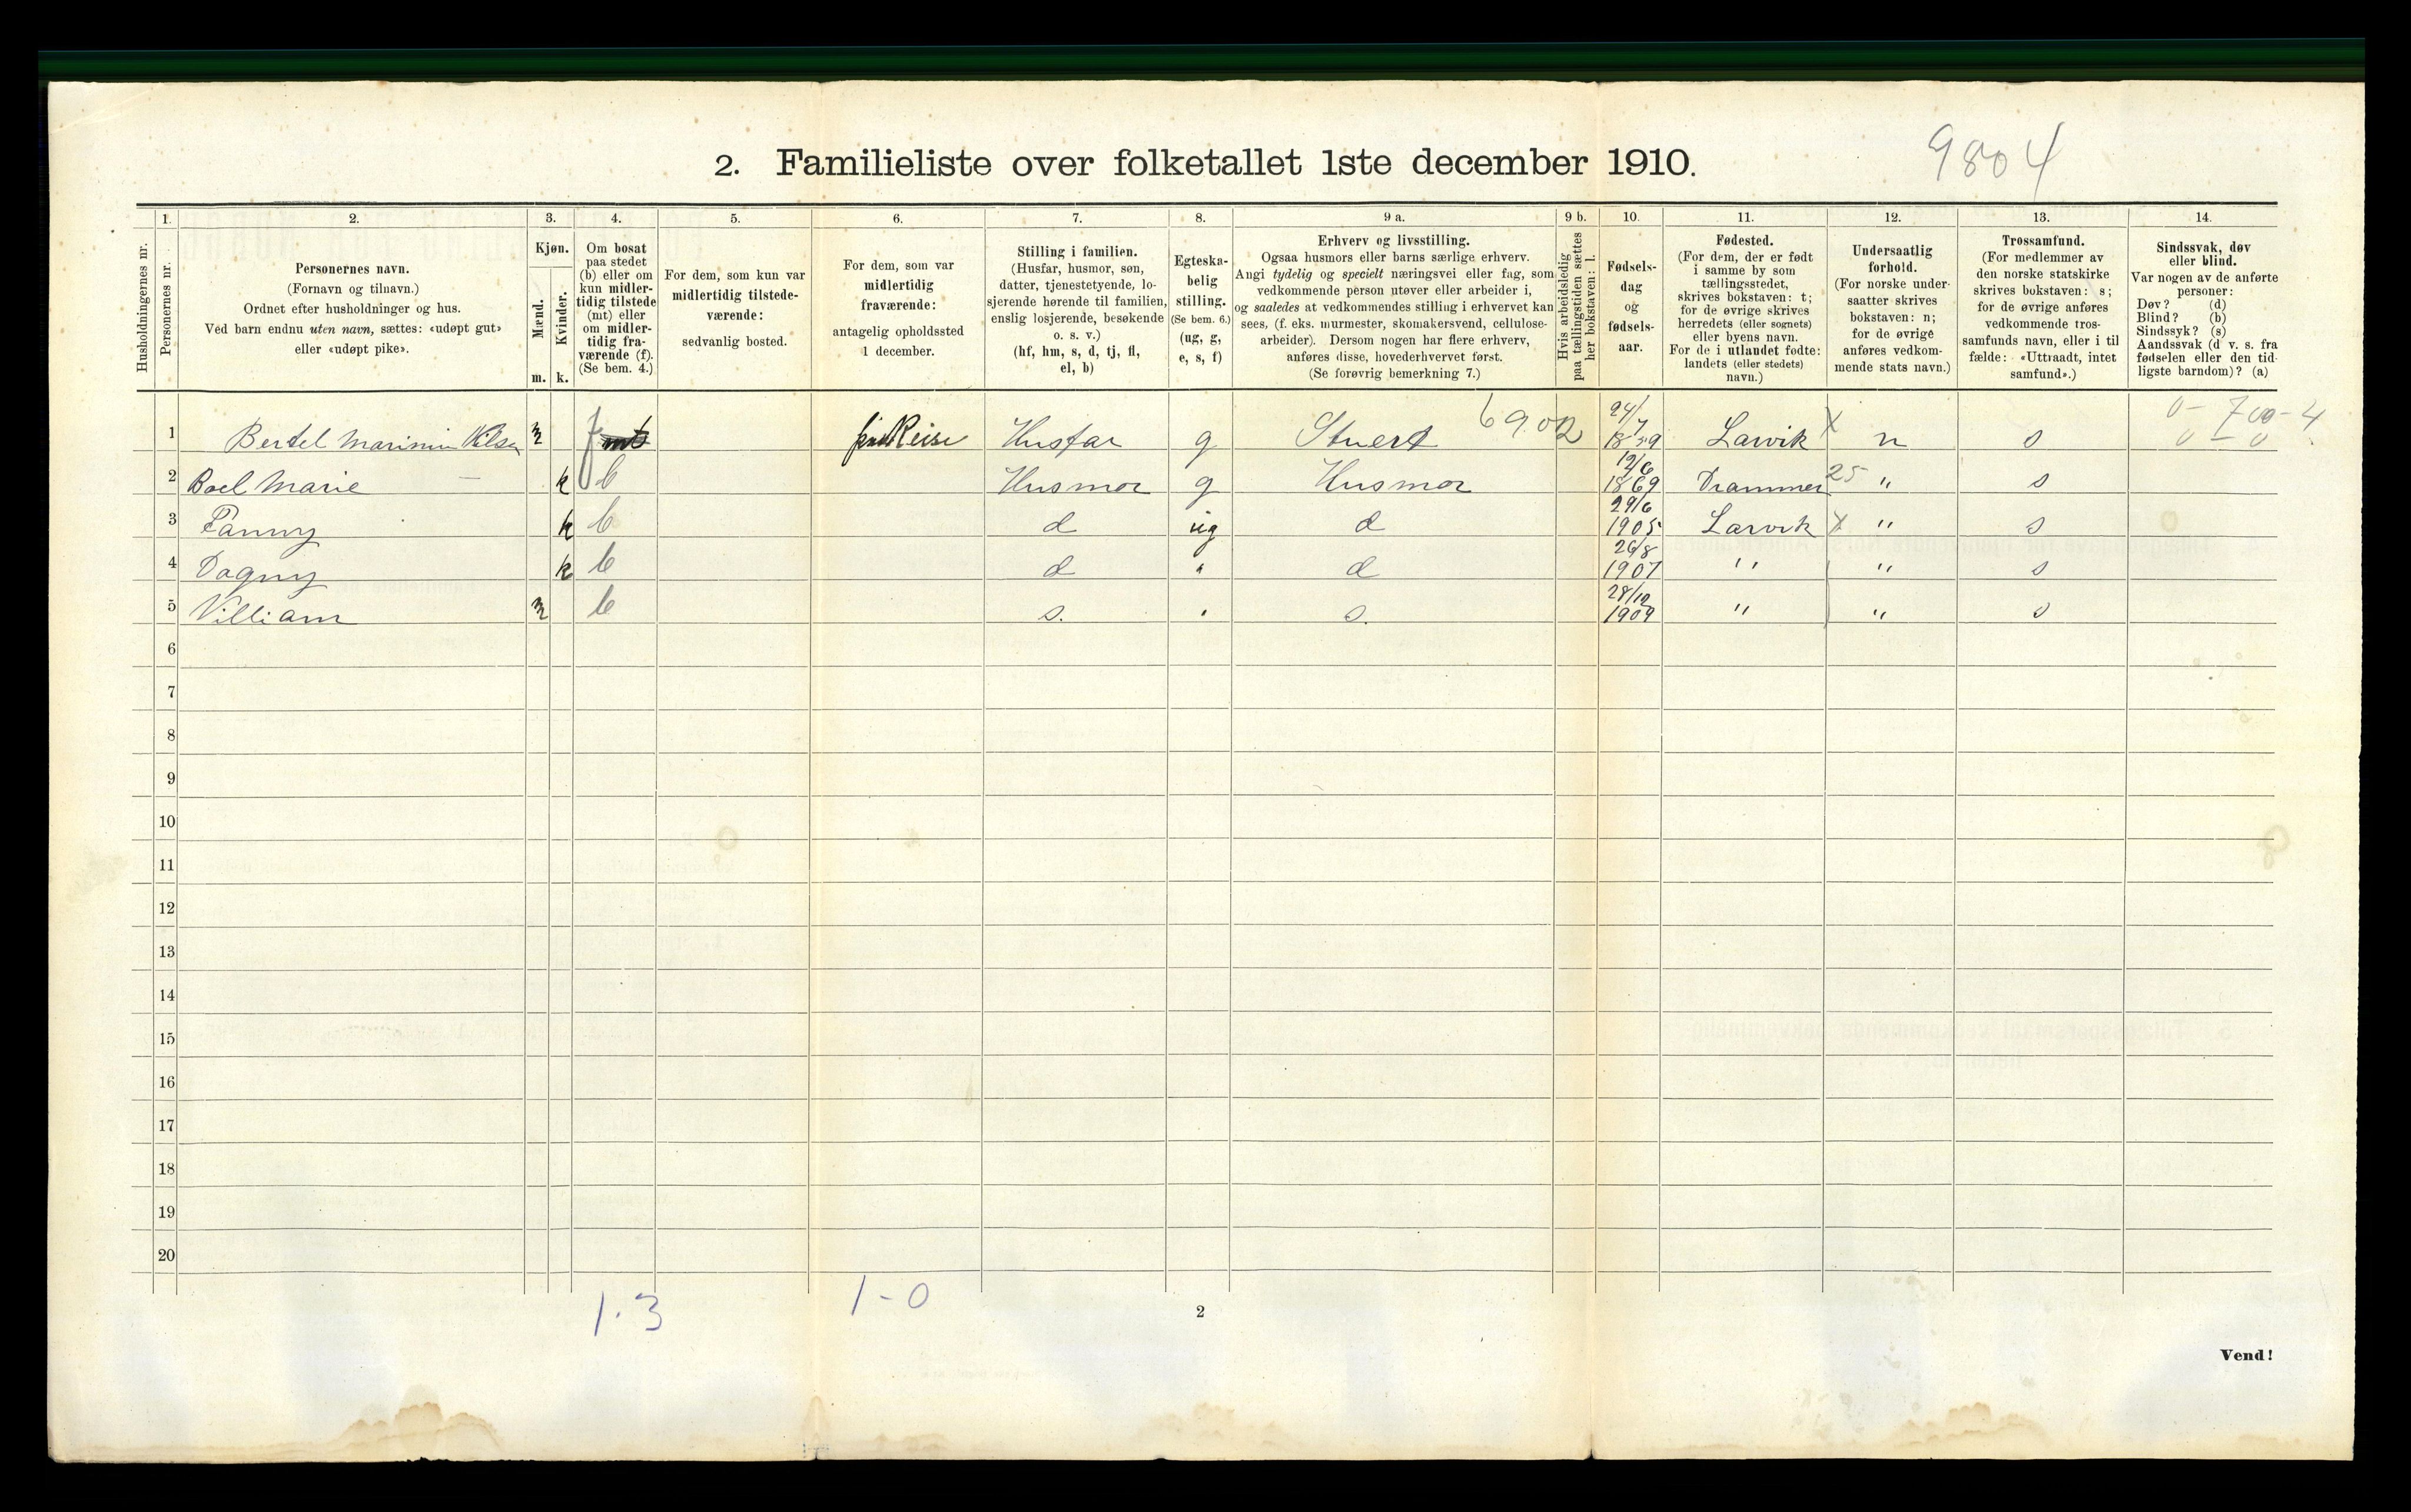 9804
2. Familieliste over folketallet 1ste december 1910.
Husholdningernes nr.
1. Personernes nr.
2. Personernes navn.
(Fornavn og tilnavn.)
Ordnet efter husholdninger og hus.
Ved barn endnu uten navn, sættes: «udøpt gut»
eller «udøpt pike».
3. Kjøn.
Mænd. m.
Kvinder. k.
4. Om bosat
paa stedet
(b) eller om
kun midler-
tidig tilstede
(mt) eller
om midler-
tidig fra-
værende (f).
(Se bem. 4.)
5. For dem, som kun var
midlertidig tilstede-
værende:
sedvanlig bosted.
6. For dem, som var
midlertidig
fraværende:
antagelig opholdssted
1 december.
7. Stilling i familien.
(Husfar, husmor, søn,
datter, tjenestetyende, lo-
sjerende hørende til familien,
enslig losjerende, besøkende
o. s. v.)
(hf, hm, s, d, tj, fl,
el, b)
8. Egteska-
belig
stilling.
(Se bem. 6.)
(ug, g,
e, s, f)
9 a. Erhverv og livsstilling.
Ogsaa husmors eller barns særlige erhverv.
Angi tydelig og specielt næringsvei eller fag, som
vedkommende person utøver eller arbeider i,
og saaledes at vedkommendes stilling i erhvervet kan
sees, (f. eks. murmester, skomakersvend, cellulose-
arbeider). Dersom nogen har flere erhverv,
anføres disse, hovederhvervet først.
(Se forøvrig bemerkning 7.)
9 b. Hvis arbeidsledig
paa tællingstiden sættes
her bokstaven: l.
10. Fødsels-
dag
og
fødsels-
aar.
11. Fødested.
(For dem, der er født
i samme by som
tællingsstedet,
skrives bokstaven: t;
for de øvrige skrives
herredets (eller sognets)
eller byens navn.
For de i utlandet fødte:
landets (eller stedets)
navn.)
12. Undersaatlig
forhold.
(For norske under-
saatter skrives
bokstaven: n;
for de øvrige
anføres vedkom-
mende stats navn.)
13. Trossamfund.
(For medlemmer av
den norske statskirke
skrives bokstaven: s;
for de øvrige anføres
vedkommende tros-
samfunds navn, eller i til-
fælde: «Uttraadt, intet
samfund».)
14. Sindssvak, døv
eller blind.
Var nogen av de anførte
personer:
Døv? (d)
Blind? (b)
Sindssyk? (s)
Aandssvak (d. v. s. fra
fødselen eller den tid-
ligste barndom)? (a)
1 Bertel m f mt Reise Husfar g Stuert 6902 24/7 Larvik X n s
2 Boel Marie — k b Husmor g Husmor 12/6 1869 Drammen 25 " s
3 Fanny k b d ug d 29/6 1905 Larvik X " s
4 Dagny k b d " d 26/8 1907 " " s
5 Villiam m b s. " s. 28/12 1909 " " s
6
7
8
9
10
11
12
13
14
15
16
17
18
19
20
1.3 1-0
2
Vend!